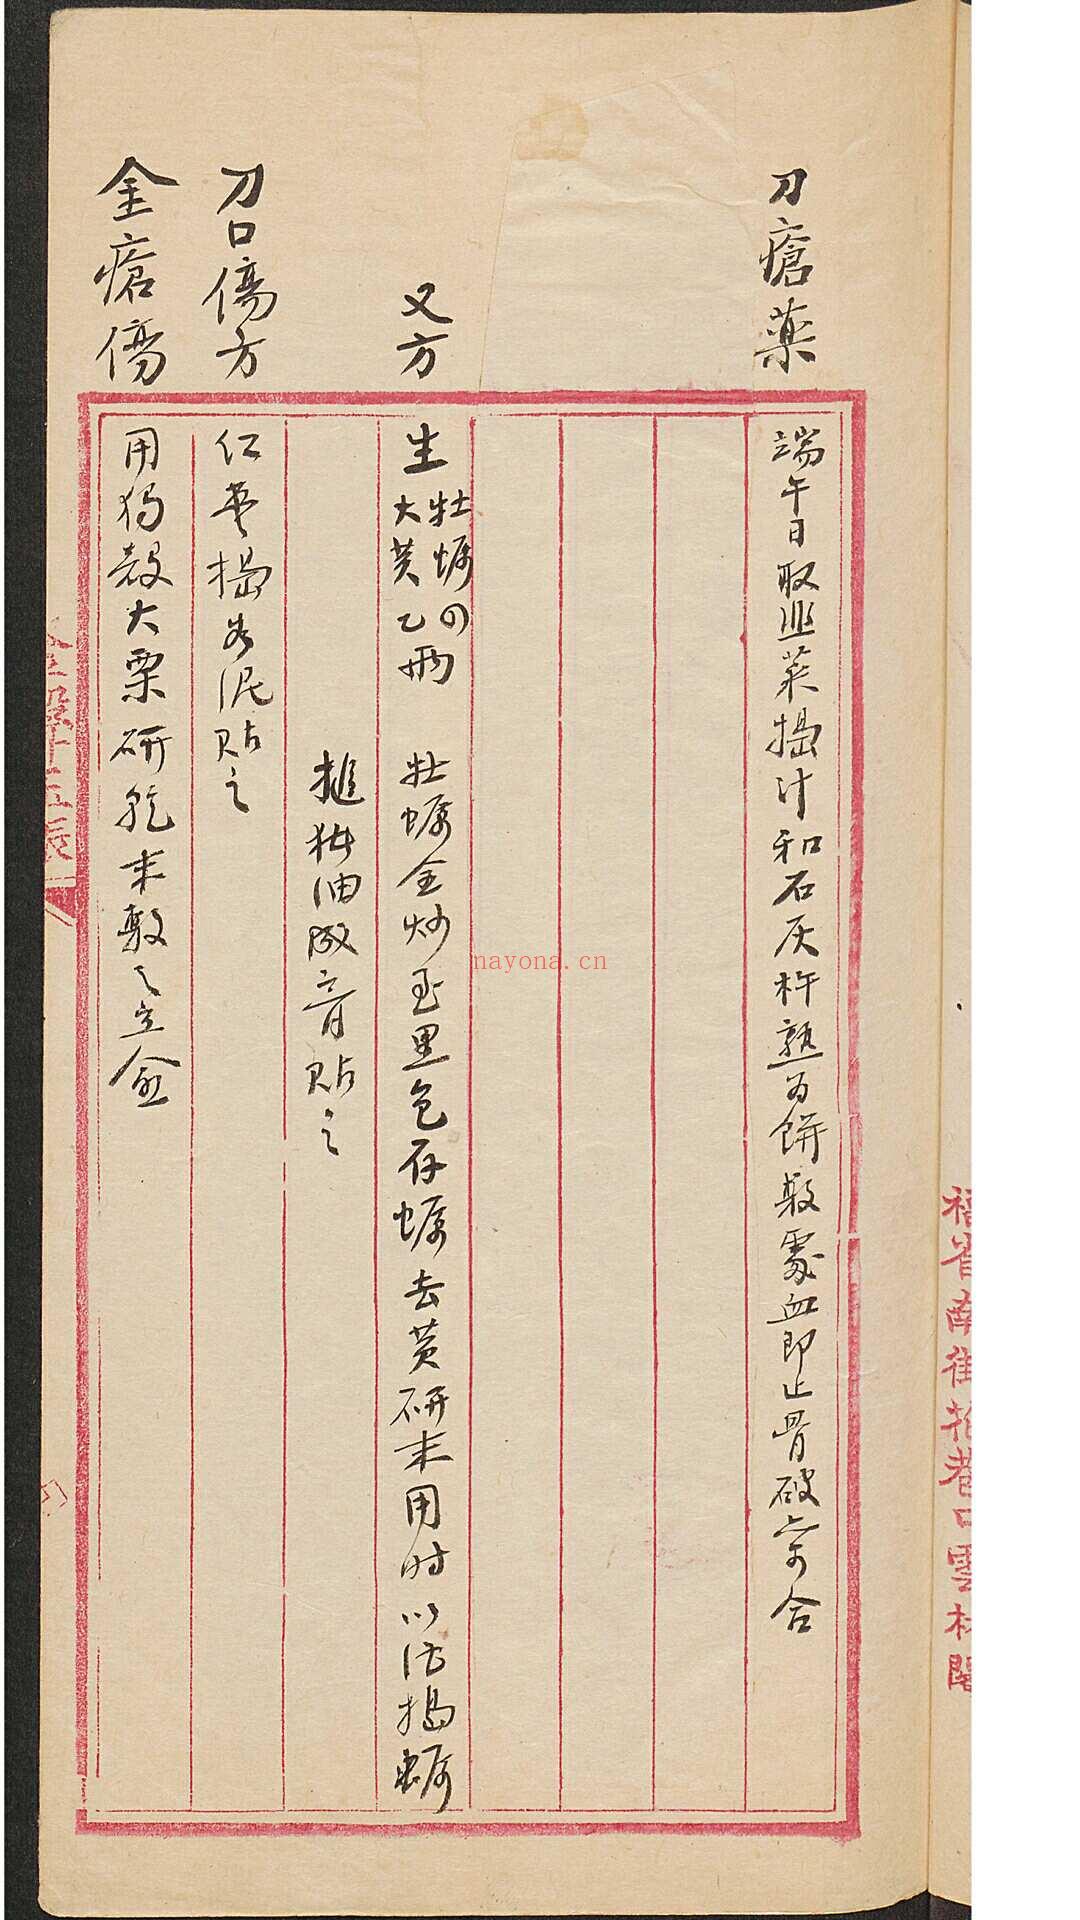 刀瘡藥
端午日取韭菜搗汁和石灰杵熟为餅敷處血即止骨破亦合
又方
生牡蠣四
大黄乙両
牡蠣仝炒至黑色存蠣去黄研末用时以活搗蠣
搥 油成膏貼之
刀口傷方
搗为泥貼之
金瘡傷
用獨殼大栗研乾末敷之立愈
福省南街 巷口雲林閣
nayona.cn